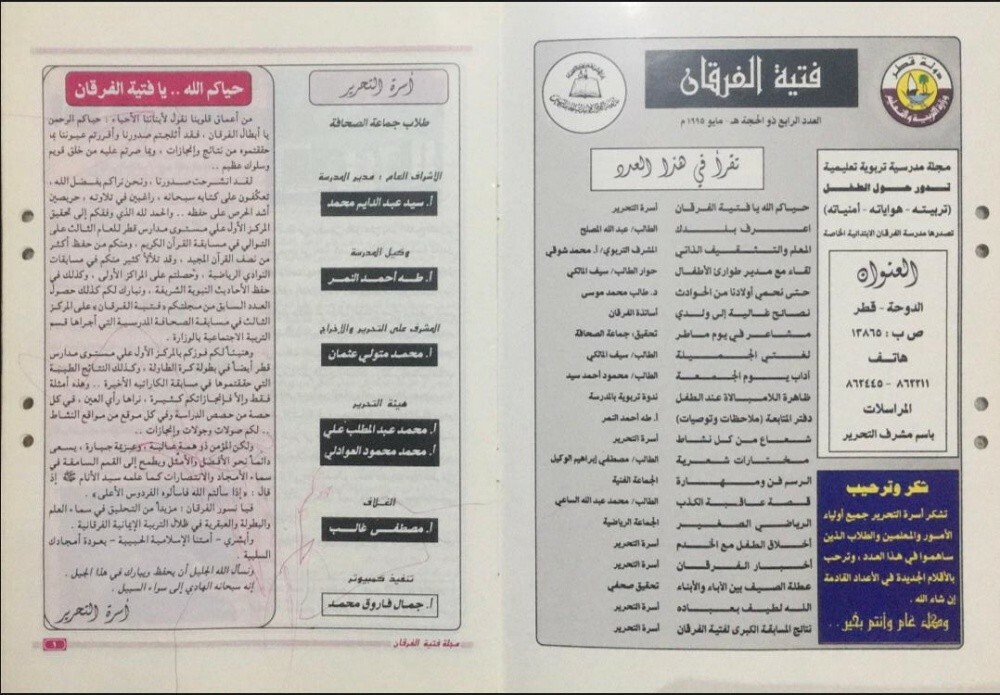 دولة قطر
وزارة التربية والتعليم
فتية الفرقان
العدد الرابع ذو الحجة هـ - مايو ١٩٩٥ م
مجلة مدرسية تربوية تعليمية
تدور حول الطفل
(تربيته - هواياته - أمنياته)
تصدرها مدرسة الفرقان الابتدائية الخاصة
العنوان
الدوحة - قطر
ص ب : ١٣٨٦٥
هاتف
٨٦٢٢١١ - ٨٦٢٤٤٥
المراسلات
باسم مشرف التحرير
شكر وترحيب
تشكر أسرة التحرير جميع أولياء
الأمور والمعلمين والطلاب الذين
ساهموا في هذا العدد ، وترحب
بالأقلام الجديدة في الأعداد القادمة
إن شاء الله .
وكل عام وأنتم بخير ..
تقرأ في هذا العدد
حياكم الله يا فتية الفرقان أسرة التحرير
اعرف بلدك الطالب/ عبد الله المصلح
المعلم والتثقيف الذاتي المشرف التربوي/ أ. محمد شوقي
لقاء مع مدير طوارئ الأطفال حوار الطالب/ سيف المالكي
حتى نحمي أولادنا من الحوادث د. طالب محمد موسى
نصائح غالية إلى ولدي أساتذة الفرقان
مشاعر في يوم ماطر تحقيق: جماعة الصحافة
لغتي الجميلة الطالب/ سيف المالكي
آداب يوم الجمعة الطالب/ محمود أحمد سيد
ظاهرة اللامبالاة عند الطفل ندوة تربوية بالمدرسة
دفتر المتابعة (ملاحظات وتوصيات) أ. طه أحمد النمر
شعاع من كل نشاط أسرة التحرير
مختارات شعرية الطالب/ مصطفى إبراهيم الوكيل
الرسم فن ومهارة الجماعة الفنية
قصة عاقبة الكذب الطالب/ محمد عبد الله الساعي
الرياضي الصغير الجماعة الرياضية
أخلاق الطفل مع الخدم أسرة التحرير
أخبار الفرقان أسرة التحرير
عطلة الصيف بين الآباء والأبناء تحقيق صحفي
الله لطيف بعباده أسرة التحرير
نتائج المسابقة الكبرى لفتية الفرقان أسرة التحرير
أسرة التحرير
طلاب جماعة الصحافة
الإشراف العام : مدير المدرسة
أ. سيد عبد الدايم محمد
وكيل المدرسة
أ. طه أحمد النمر
المشرف على التحرير والإخراج
أ. محمد متولي عثمان
هيئة التحرير
أ. محمد عبد المطلب علي
أ. محمد محمود العوادلي
الغلاف
أ. مصطفى غالب
تنفيذ كمبيوتر
أ. جمال فاروق محمد
حياكم الله .. يا فتية الفرقان
من أعماق قلوبنا نقول لأبنائنا الأحباء : حياكم الرحمن
يا أبطال الفرقان ، فقد أثلجتم صدورنا وأقررتم عيوننا بما
حققتموه من نتائج وإنجازات ، وبما صرتم عليه من خلق قويم
وسلوك عظيم ..
لقد انشرحت صدورنا ، ونحن نراكم بفضل الله ،
تعكفون على كتابه سبحانه ، راغبين في تلاوته ، حريصين
أشد الحرص على حفظه .. والحمد لله الذي وفقكم إلى تحقيق
المركز الأول على مستوى مدارس قطر للعام الثالث على
التوالي في مسابقة القرآن الكريم ، ومنكم من حفظ أكثر
من نصف القرآن المجيد ، وقد تلألأ كثير منكم في مسابقات
النوادي الرياضية ، وحصلتم على المراكز الأولى ، وكذلك في
حفظ الأحاديث النبوية الشريفة ، ونبارك لكم كذلك حصول
العدد السابق من مجلتكم «فتية الفرقان» على المركز
الثالث في مسابقة الصحافة المدرسية التي أجراها قسم
التربية الاجتماعية بالوزارة .
وهنيئاً لكم فوزكم بالمركز الأول على مستوى مدارس
قطر أيضاً في بطولة كرة الطاولة ، وكذلك النتائج الطيبة
التي حققتموها في مسابقة الكاراتيه الأخيرة .. وهذه أمثلة
فقط وإلا فإنجازاتكم كثيرة ، نراها رأي العين ، في كل
حصة من حصص الدراسة وفي كل موقع من مواقع النشاط
.. لكم صولات وجولات وإنجازات ..
ولكن المؤمن ذو همة عالية ، وعزيمة جبارة ، يسعى
دائماً نحو الأفضل والأمثل ويطمح إلى القمم السامقة في
سماء الأمجاد والانتصارات كما علمه سيد الأنام ﷺ إذ
قال : «إذا سألتم الله فاسألوه الفردوس الأعلى» .
فيا نسور الفرقان : مزيداً من التحليق في سماء العلم
والبطولة والعبقرية في ظلال التربية الإيمانية الفرقانية .
وأبشري - أمتنا الإسلامية الحبيبة - بعودة أمجادك
السليبة .
ونسأل الله الجليل أن يحفظ ويبارك في هذا الجيل .
إنه سبحانه الهادي إلى سواء السبيل .
أسرة التحرير
مجلة فتية الفرقان
١